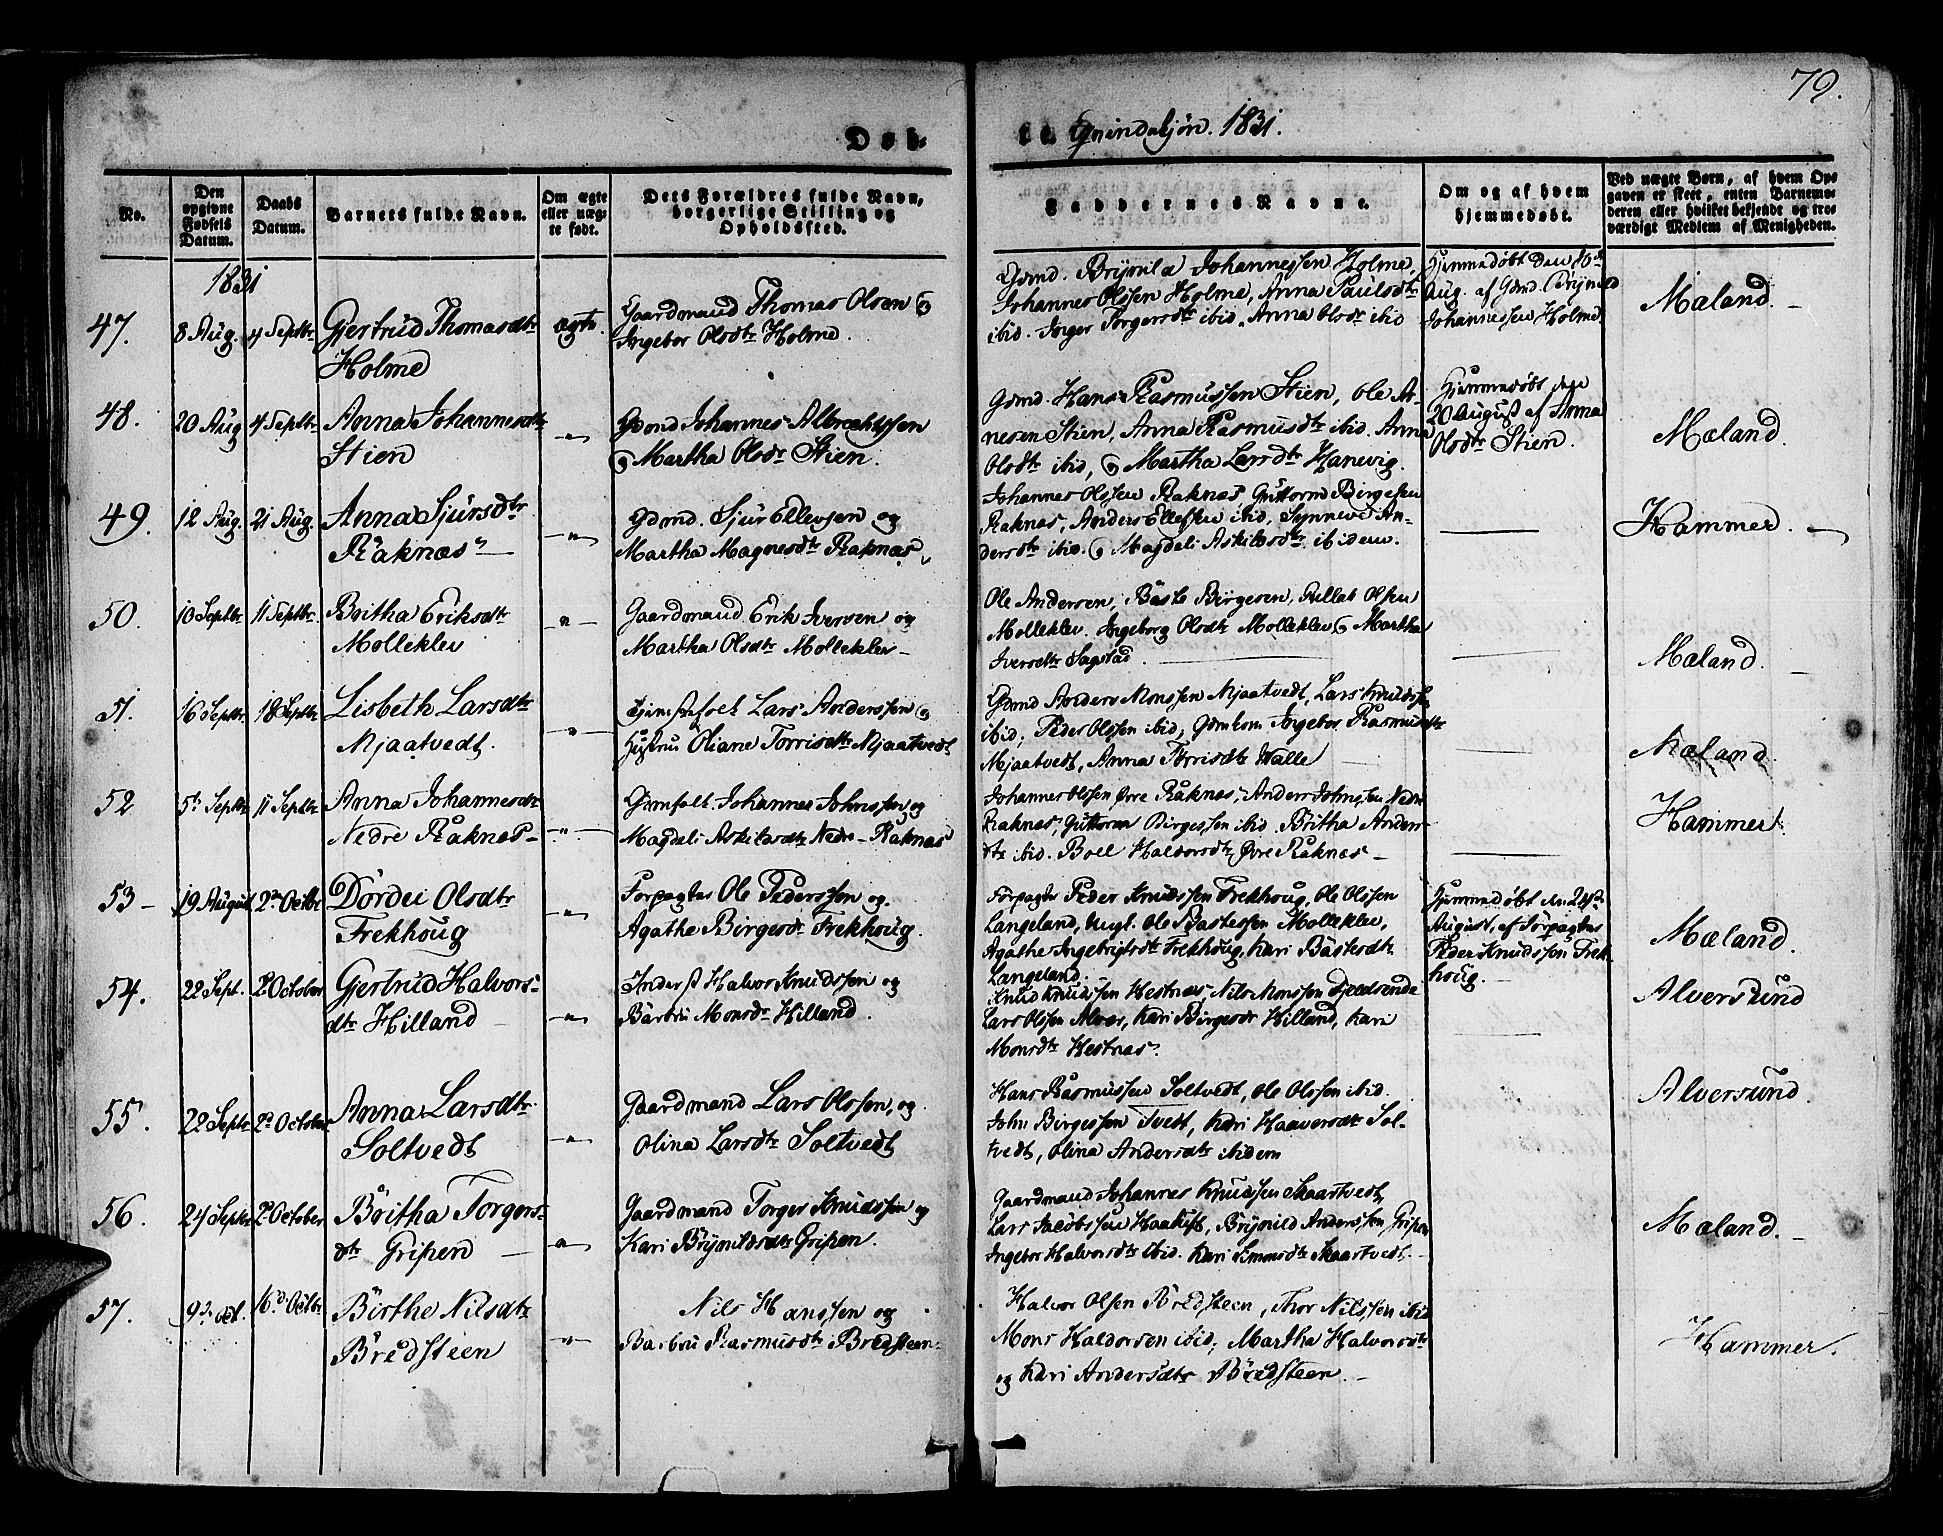 79.
Døb- te Qvindekjøn. 1831.
No.
Den opgivne Fødsels Datum.
Daabs Datum.
Barnets fulde Navn.
Om ægte eller uægte født.
Dets Forældres fulde Navn, borgerlige Stilling og Opholdssted.
Faddernes Navne.
Om og af hvem hjemmedøbt.
Ved uægte Børn, af hvem Opgaven er skeet, enten Barnemoderen eller hvilket bekjendt og troværdigt Medlem af Menigheden.
1831
47. 8 Aug. 4 Septbr.
Gjertrud Thomasdtr
Holme
ægte.
Gaardmand Thomas Olsen og
Ingebor Olsdtr Holme.
Gdmd. Brynild Johannessen Holme,
Johannes Olssen Holme, Anna Paulsdtr
ibid. Torgersdtr ibid. Anna Olsdr ibid
Hjemmedøbt den 10de
Aug. af Gdmd. Brynild
Johannessen Holme.
Mæland.
48. 20 Aug 4 Septbr
Anna Johannesdtr
Stien
— " —
Gdmd Johannes Albrechtssen
og Martha Olsdr Stien.
Gdmd. Hans Rasmussen Stien, Ole Ar-
nesen Stien, Anna Rasmusdtr ibid. Anna
Olsdtr ibid, og Martha Larsdtr Hanevig.
Hjemmedøbt den
20 August af Anna
Olsdtr Stien.
Mæland.
49. 12 Aug. 21 Aug.
Anna Sjursdtr
Raknæs
— " —
Gdmd. Sjur Ellevsen og
Martha Magnesdtr Raknæs
Johannes Olssen Raknæs, Guttorm Birgesen
Raknæs, Anders Ellefsen ibid, Synneve An-
dersdtr ibid. og Magdeli Askildsdtr ibidem.
Hammer.
50. 10 Septbr 11 Septbr.
Britha Eriksdtr
Molleklev
— " —
Gaardmand Erik Iversen og
Martha Olsdtr Molleklev
Ole Andersen, Baste Birgesen, Olsen
Molleklev. Ingeborg Olsdtr Molleklev, og Martha
Iversdtr Sagstad.
Mæland.
51. 16 Septbr. 18 Septbr.
Lisbeth Larsdtr
Mjaatvedt.
— " —
Lars Anderssen og
Hustru Oliane Torrisdtr Mjaatvedt
Gdmd Anders Monssen Mjaatvedt, Lars Knudss.
ibid, Peder Olssen ibid, Gdmkone Ingebor Rasmusdtr
Mjaatvedt, Anna Torrisdtr Walle
Mæland.
52 5te Septbr 11 Septbr
Anna Johannesdtr
Nedre Raknæs
— " —
Gdmfolk Johannes Johnssen og
Magdeli Askildsdtr Nedre Raknæs
Johannes Olssen Øvre Raknæs, Anders Johnssen Nedre
Raknæs, Guttorm Birgessen ibid. Britha Anders-
dtr ibid. Boel Haldorsdtr Øvre Raknæs
Hammer.
53 19 August 2den Octbr
Dørdei Olsdtr
Frekhoug
— " —
Forpagter Ole Pederssen og
Agathe Birgesdr Frekhoug.
Forpagter Peder Knudssen Frekhoug, Ole Olssen
Langeland, Ungk. Ole Bastessen Molleklev,
Agathe Ingebrigtsdtr Frekhoug, Kari Bastesdtr
Langeland.
Hjemmedøbt den 24de
August, af Forpagter
Peder Knudssen Frek-
houg.
Mæland.
54. 22 Sept. 2d October
Gjertrud Halvors-
dtr Hilland
— " —
Inderst Halvor Knudssen og
Barbru Monsdr Hilland.
Knud Knudssen Hestnæs, Nils Monssen Fjeldsende
Lars Olssen Alver, Kari Birgesdr Hilland, Kari
Monsdtr Hestnæs.
Alversund
55. 22 Septr 2d October
Anna Larsdtr
Soltvedt
— " —
Gaardmand Lars Olssen, og
Olina Larsdtr Soltvedt
Hans Rasmussen Soltvedt, Ole Olssen ibid.
John Birgessen Tvedt, Kari Haaversdtr Sol-
tvedt, Olina Andersdtr ibidem
Alversund.
56. 24 Septr 2d October
Britha Torgers-
dtr Gripen
— " —
Gaardmand Torger Knudssen og
Kari Brynildsdtr Gripen.
Gaardmand Johannes Knudssen Skaartvedt,
Lars Jacobssen Brynild Anderssen Gripen
Ingebor Halvorsdtr ibid. Kari Skaartvedt.
Mæland.
57. 9d. Oct. 16d Octbr
Birthe Nilsdtr
Bredsteen
— " —
Nils Hanssen og
Barbru Rasmusdtr Bredsteen.
Halvor Olsen Bredsteen, Thor Nilssen ibid
Mons Haldorsen ibid; Martha Halvorsdtr
og Kari Andersdtr Bredsteen.
Hammer.